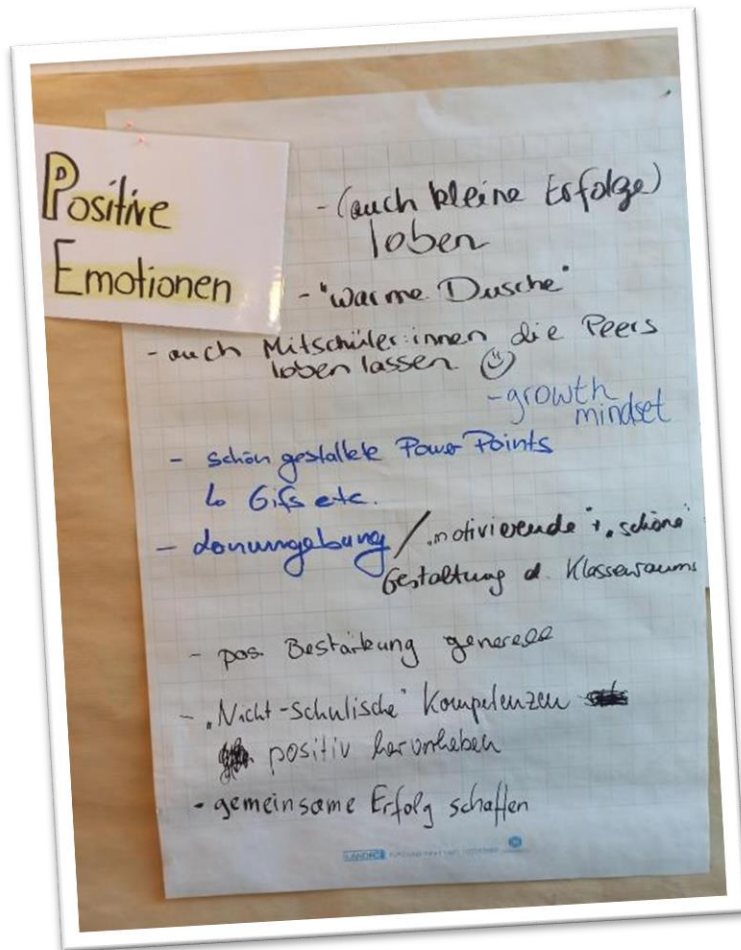 Positive
Emotionen
- (auch kleine Erfolge)
loben
- "warme Dusche"
- auch Mitschüler:innen die Peers
loben lassen
- growth
mindset
- schön gestaltete Power Points
↳ Gifs etc.
- Lernumgebung / "motivierende" + "schöne"
Gestaltung d. Klassenraums
- pos. Bestärkung generell
- "Nicht-schulische" Kompetenzen
positiv hervorheben
- gemeinsame Erfolg schaffen